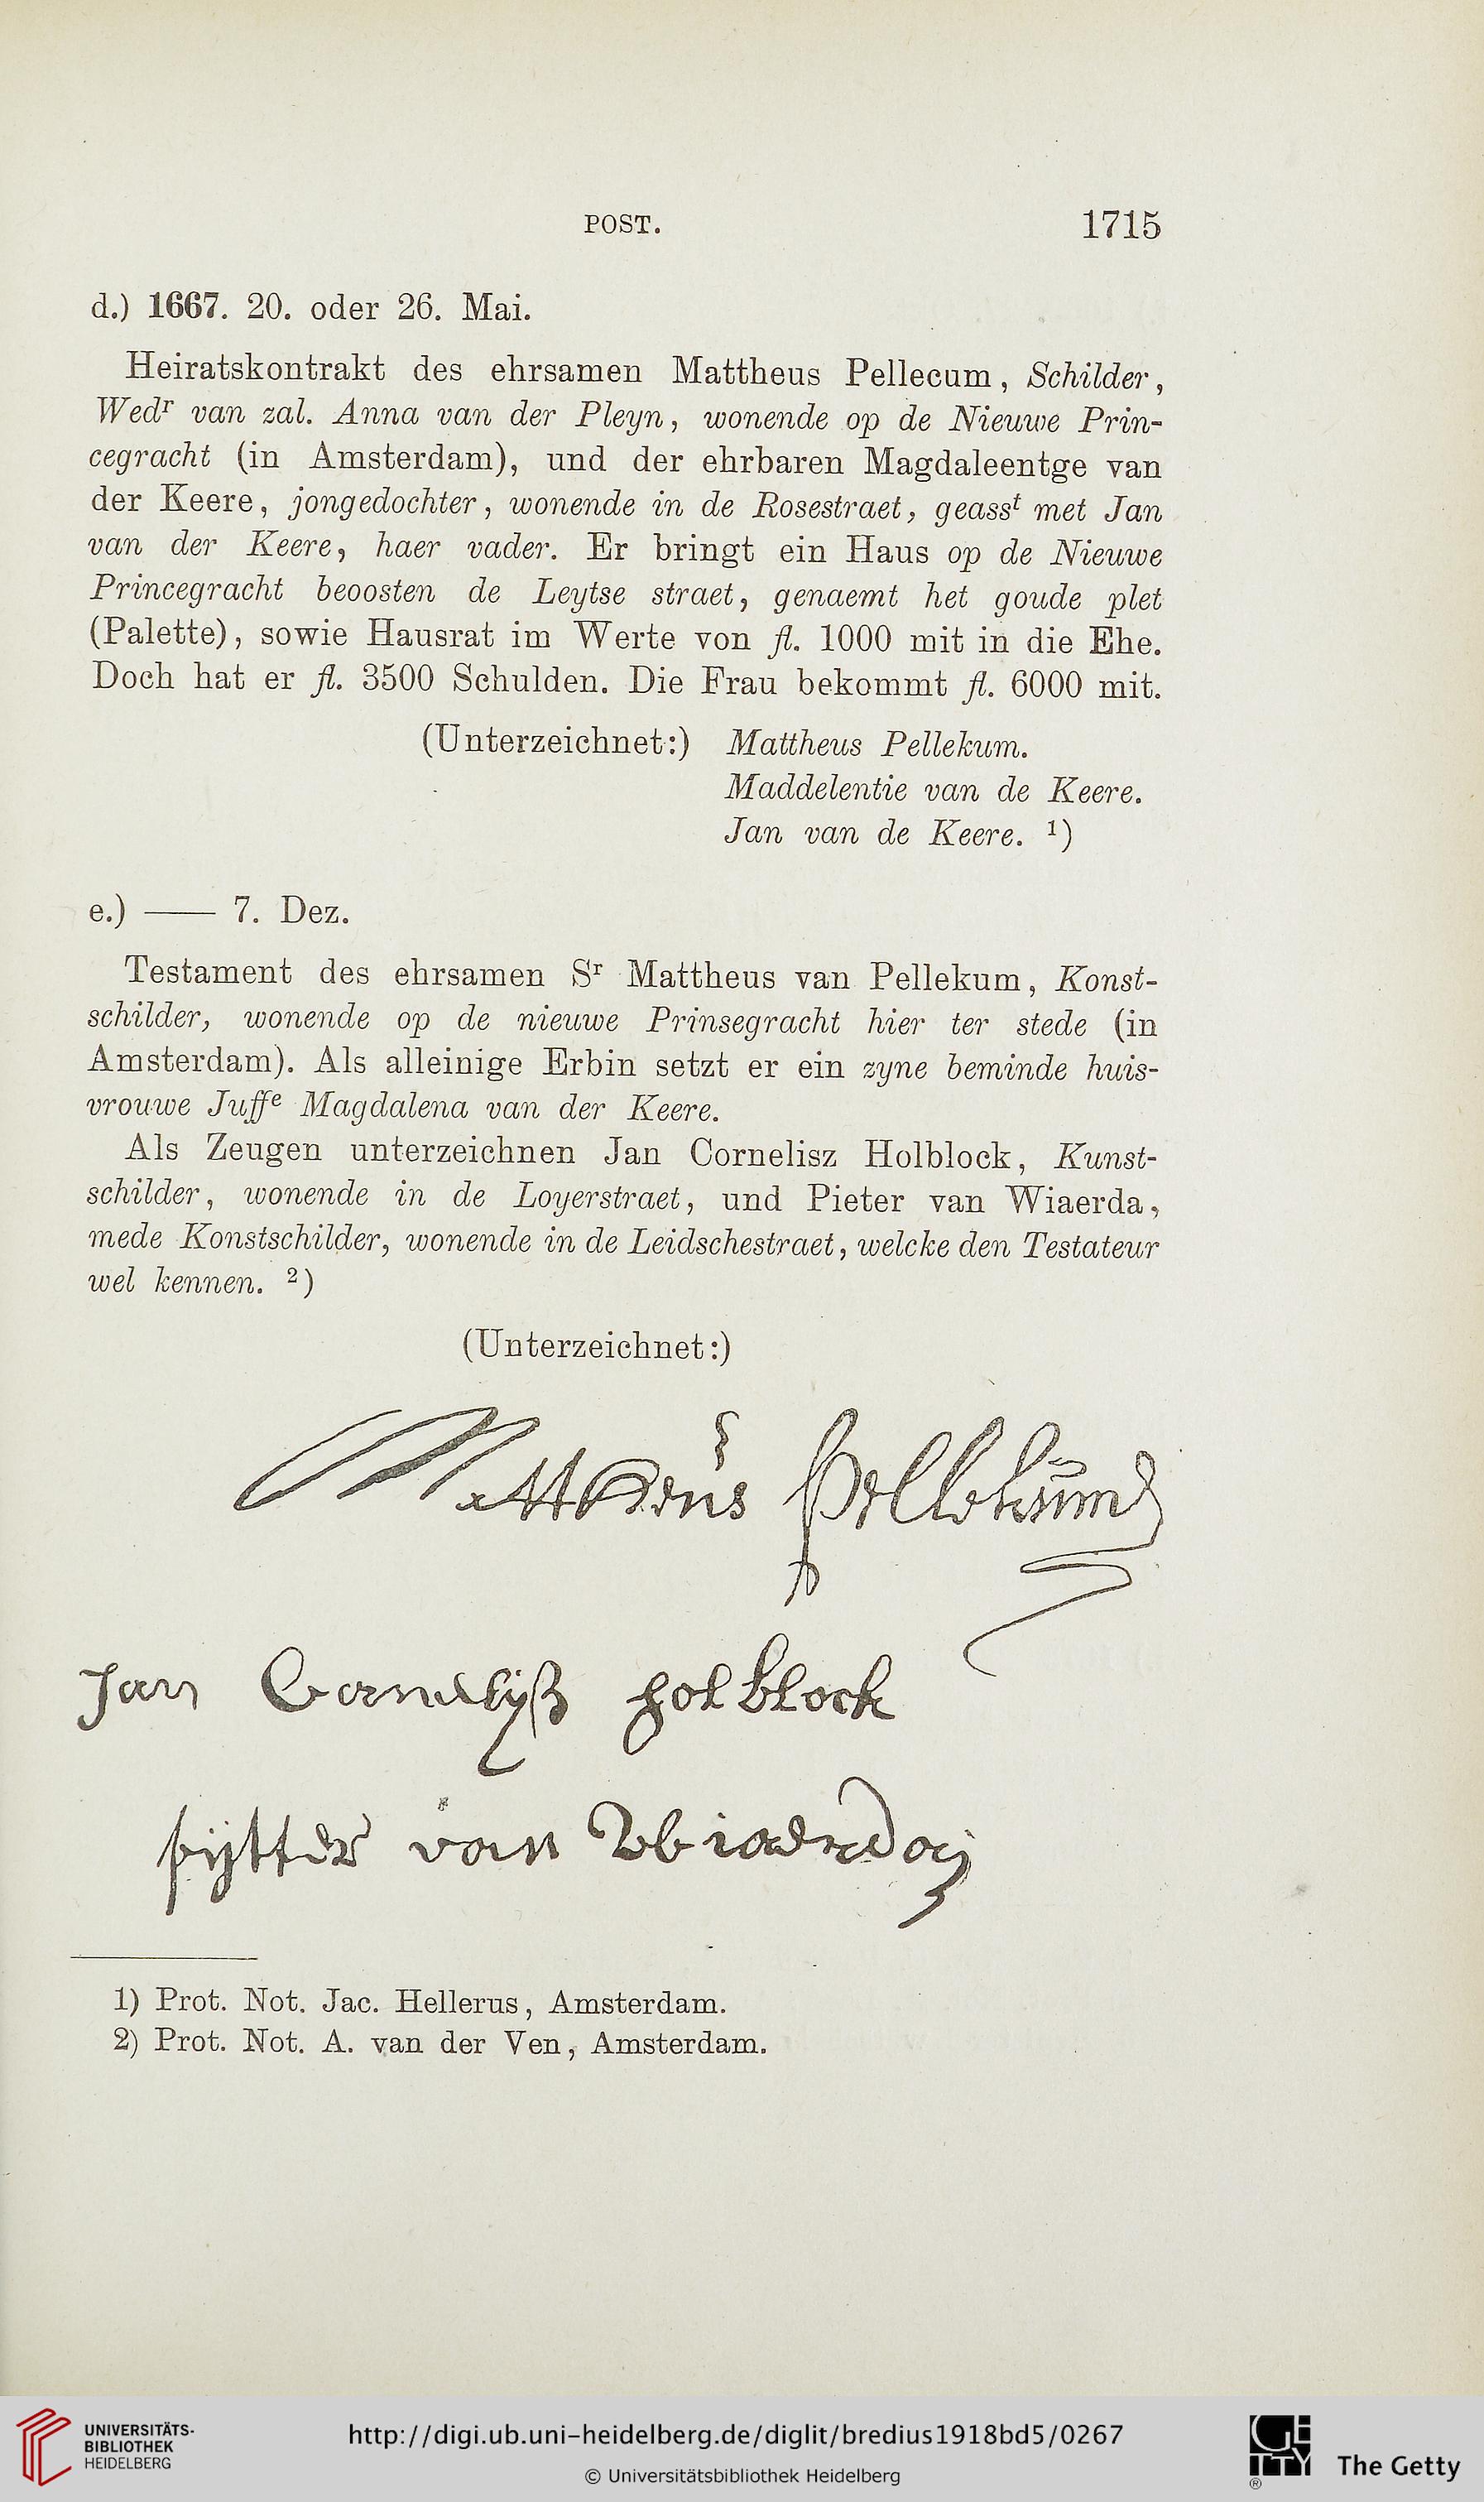 POST. 1715
d.) 1667. 20. oder 26. Mai.
Heiratskontrakt des ehrsamen Mattheus Pellecum, Schilder,
Wedʳ van zal. Anna van der Pleyn, wonende op de Nieuwe Prin-
cegracht (in Amsterdam), und der ehrbaren Magdaleentge van
der Keere, jongedochter, wonende in de Rosestraet, geassᵗ met Jan
van der Keere, haer vader. Er bringt ein Haus op de Nieuwe
Princegracht beoosten de Leytse straet, genaemt het goude plet
(Palette), sowie Hausrat im Werte von fl. 1000 mit in die Ehe.
Doch hat er fl. 3500 Schulden. Die Frau bekommt fl. 6000 mit.
(Unterzeichnet:) Mattheus Pellekum.
Maddelentie van de Keere.
Jan van de Keere. ¹)
e.) —— 7. Dez.
Testament des ehrsamen Sʳ Mattheus van Pellekum, Konst-
schilder, wonende op de nieuwe Prinsegracht hier ter stede (in
Amsterdam). Als alleinige Erbin setzt er ein zyne beminde huis-
vrouwe Juffᵉ Magdalena van der Keere.
Als Zeugen unterzeichnen Jan Cornelisz Holblock, Kunst-
schilder, wonende in de Loyerstraet, und Pieter van Wiaerda,
mede Konstschilder, wonende in de Leidschestraet, welcke den Testateur
wel kennen. ²)
(Unterzeichnet:)
Mattheus Pellekum
Jan Cornelijß holblock
pijtter van Wiaerda
1) Prot. Not. Jac. Hellerus, Amsterdam.
2) Prot. Not. A. van der Ven, Amsterdam.
UNIVERSITÄTS-
BIBLIOTHEK
HEIDELBERG
http://digi.ub.uni-heidelberg.de/diglit/bredius1918bd5/0267
© Universitätsbibliothek Heidelberg
GETTY
® The Getty